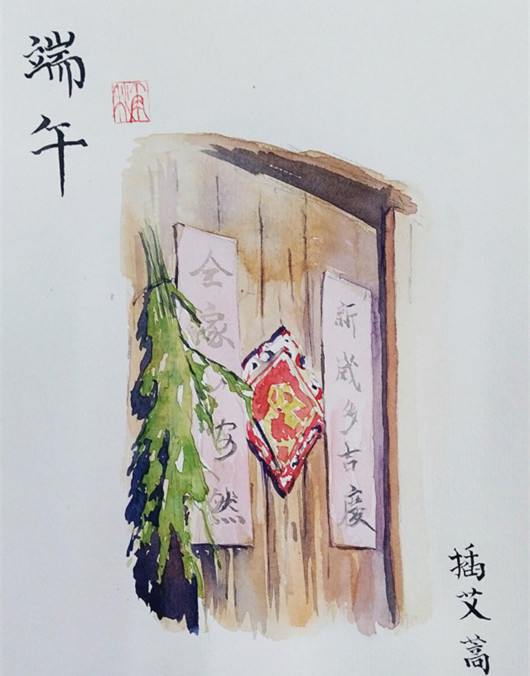 端午
新歲多吉慶
全家 安然
插艾蒿